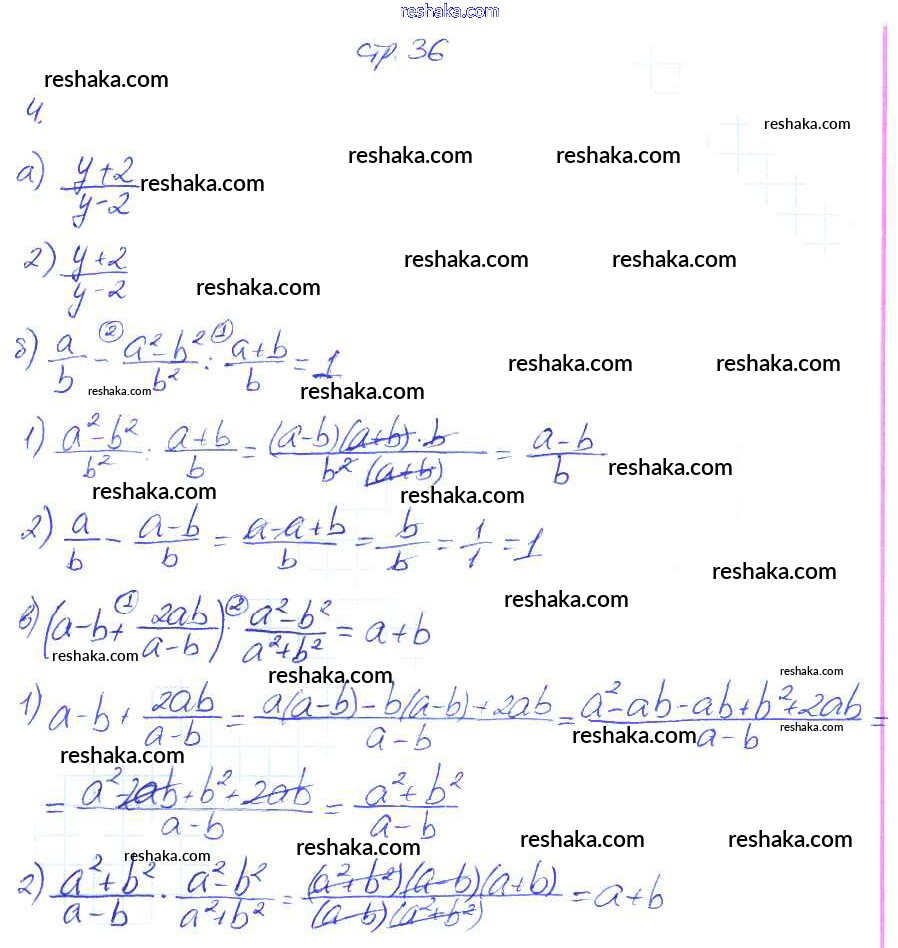 reshaka.com
стр. 36
reshaka.com
4.
reshaka.com
reshaka.com reshaka.com
а) (y+2)/(y-2) reshaka.com
2) (y+2)/(y-2) reshaka.com reshaka.com
reshaka.com
б) a/b -② (a²-b²)/b² :① (a+b)/b = 1 reshaka.com reshaka.com
reshaka.com reshaka.com
1) (a²-b²)/b² : (a+b)/b = ((a-b)(a+b)·b)/(b²(a+b)) = (a-b)/b reshaka.com
reshaka.com reshaka.com
2) a/b - (a-b)/b = (a-a+b)/b = b/b = 1/1 = 1
reshaka.com
reshaka.com
в) (a-b+① 2ab/(a-b)) ·② (a²-b²)/(a²+b²) = a+b
reshaka.com
reshaka.com reshaka.com
1) a-b + 2ab/(a-b) = (a(a-b)-b(a-b)+2ab)/(a-b) = (a²-ab-ab+b²+2ab)/(a-b) =
reshaka.com reshaka.com
reshaka.com
= (a²-2ab+b²+2ab)/(a-b) = (a²+b²)/(a-b)
reshaka.com reshaka.com
reshaka.com reshaka.com
2) (a²+b²)/(a-b) · (a²-b²)/(a²+b²) = ((a²+b²)(a-b)(a+b))/((a-b)(a²+b²)) = a+b